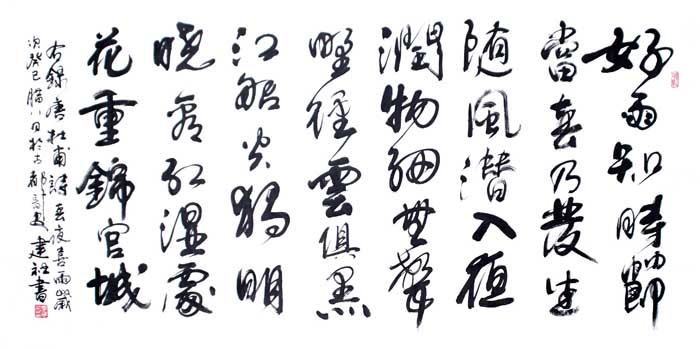 好雨知時節
當春乃發生
随風潛入夜
潤物細無聲
野徑雲俱黑
江船火獨明
曉看紅濕處
花重錦官城
右錄唐杜甫詩春夜喜雨歲
次癸巳臘八日於古都
建社書